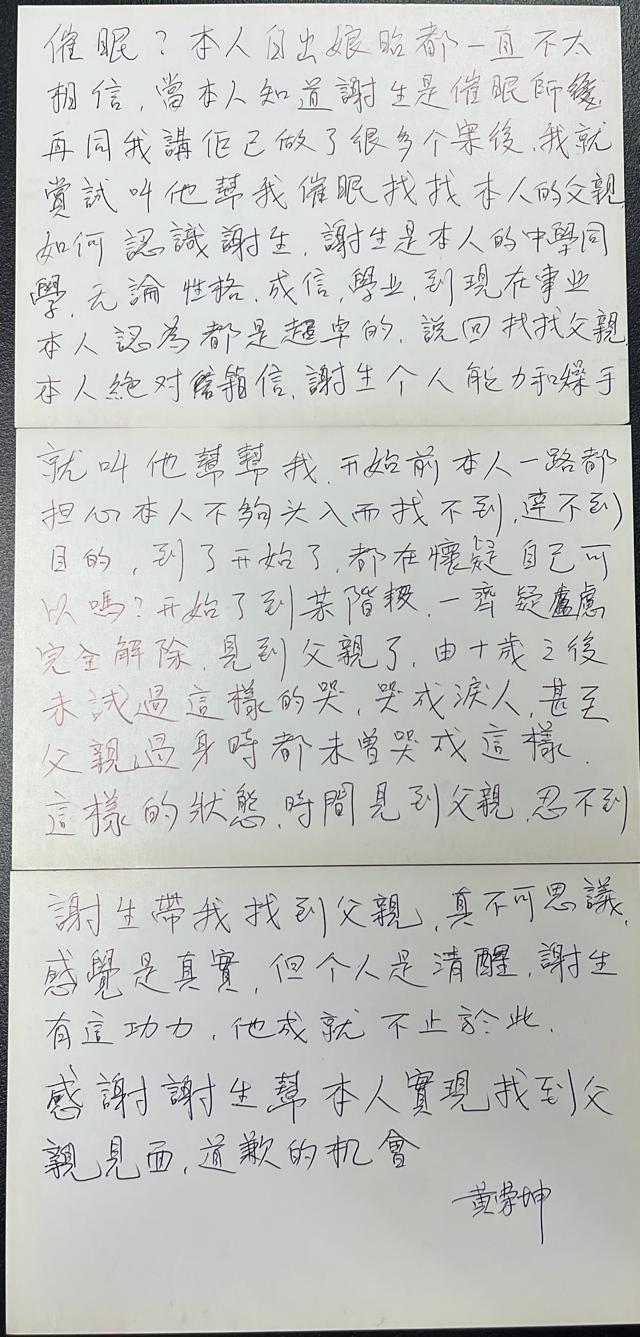 催眠？本人自出娘胎都一直不太
相信，當本人知道謝生是催眠師後，
再同我講佢已做了很多个案後，我就
嘗試叫他幫我催眠找找本人的父親
如何認識謝生，謝生是本人的中學同
學，无論性格，成信，學业，到現在事业
本人認為都是超卓的，說回找找父親
本人絕对信，謝生个人能力和操手
就叫他幫幫我，开始前本人一路都
担心本人不夠头入而找不到，達不到
目的，到了开始了，都在懷疑自己可
以嗎？开始了到某階段，一齊疑慮
完全解除，見到父親了，由十歲之後
未試過這樣的哭，哭成淚人，甚至
父親過身時都未曾哭成這樣．
這樣的狀態，時間見到父親，忍不到
謝生帶我找到父親，真不可思議，
感覺是真實，但个人是清醒，謝生
有這功力，他成就不止於此．
感謝謝生幫本人實現找到父
親見面，道歉的机會
黃荣坤